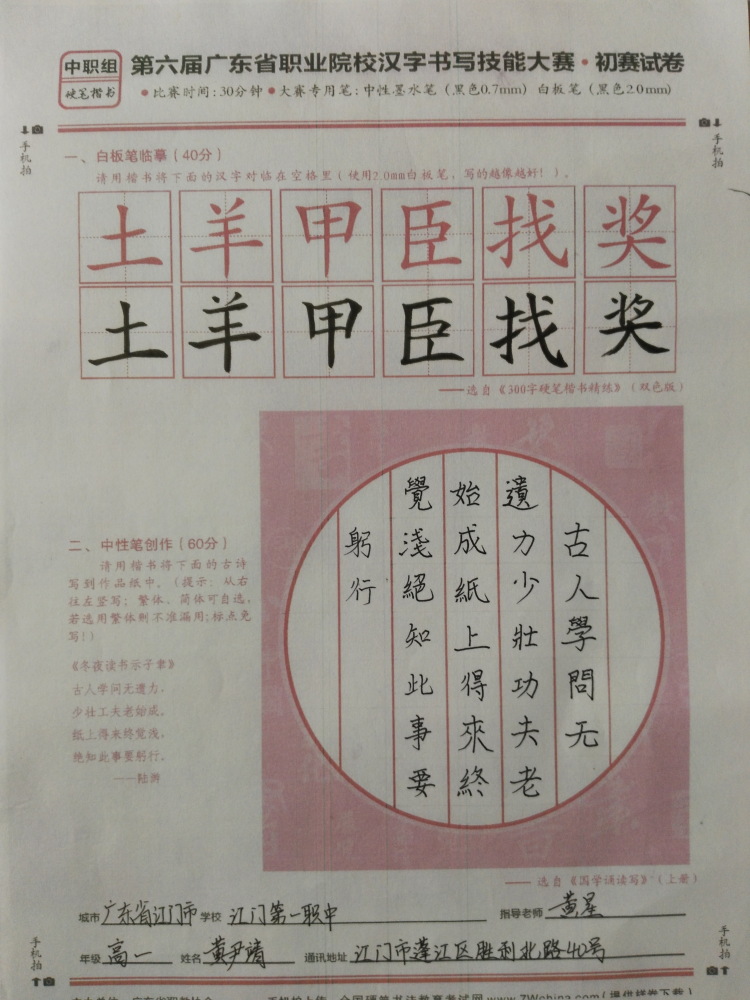 中职组
硬笔楷书
第六届广东省职业院校汉字书写技能大赛·初赛试卷
●比赛时间：30分钟 ●大赛专用笔：中性墨水笔（黑色0.7mm）白板笔（黑色2.0mm）
手机拍
手机拍
一、白板笔临摹（40分）
请用楷书将下面的汉字对临在空格里（使用2.0mm白板笔，写的越像越好！）。
土羊甲臣找奖
土羊甲臣找奖
——选自《300字硬笔楷书精练》（双色版）
二、中性笔创作（60分）
请用楷书将下面的古诗
写到作品纸中。（提示：从右
往左竖写；繁体、简体可自选，
若选用繁体则不准漏用；标点免
写！）
《冬夜读书示子聿》
古人学问无遗力，
少壮工夫老始成。
纸上得来终觉浅，
绝知此事要躬行。
——陆游
古人學問无
遺力少壯功夫老
始成紙上得來終
覺淺絕知此事要
躬行
——选自《国学诵读写》（上册）
城市 广东省江门市 学校 江门第一职中 指导老师 黄星
年级 高一 姓名 黄尹靖 通讯地址 江门市蓬江区胜利北路40号
手机拍
手机拍